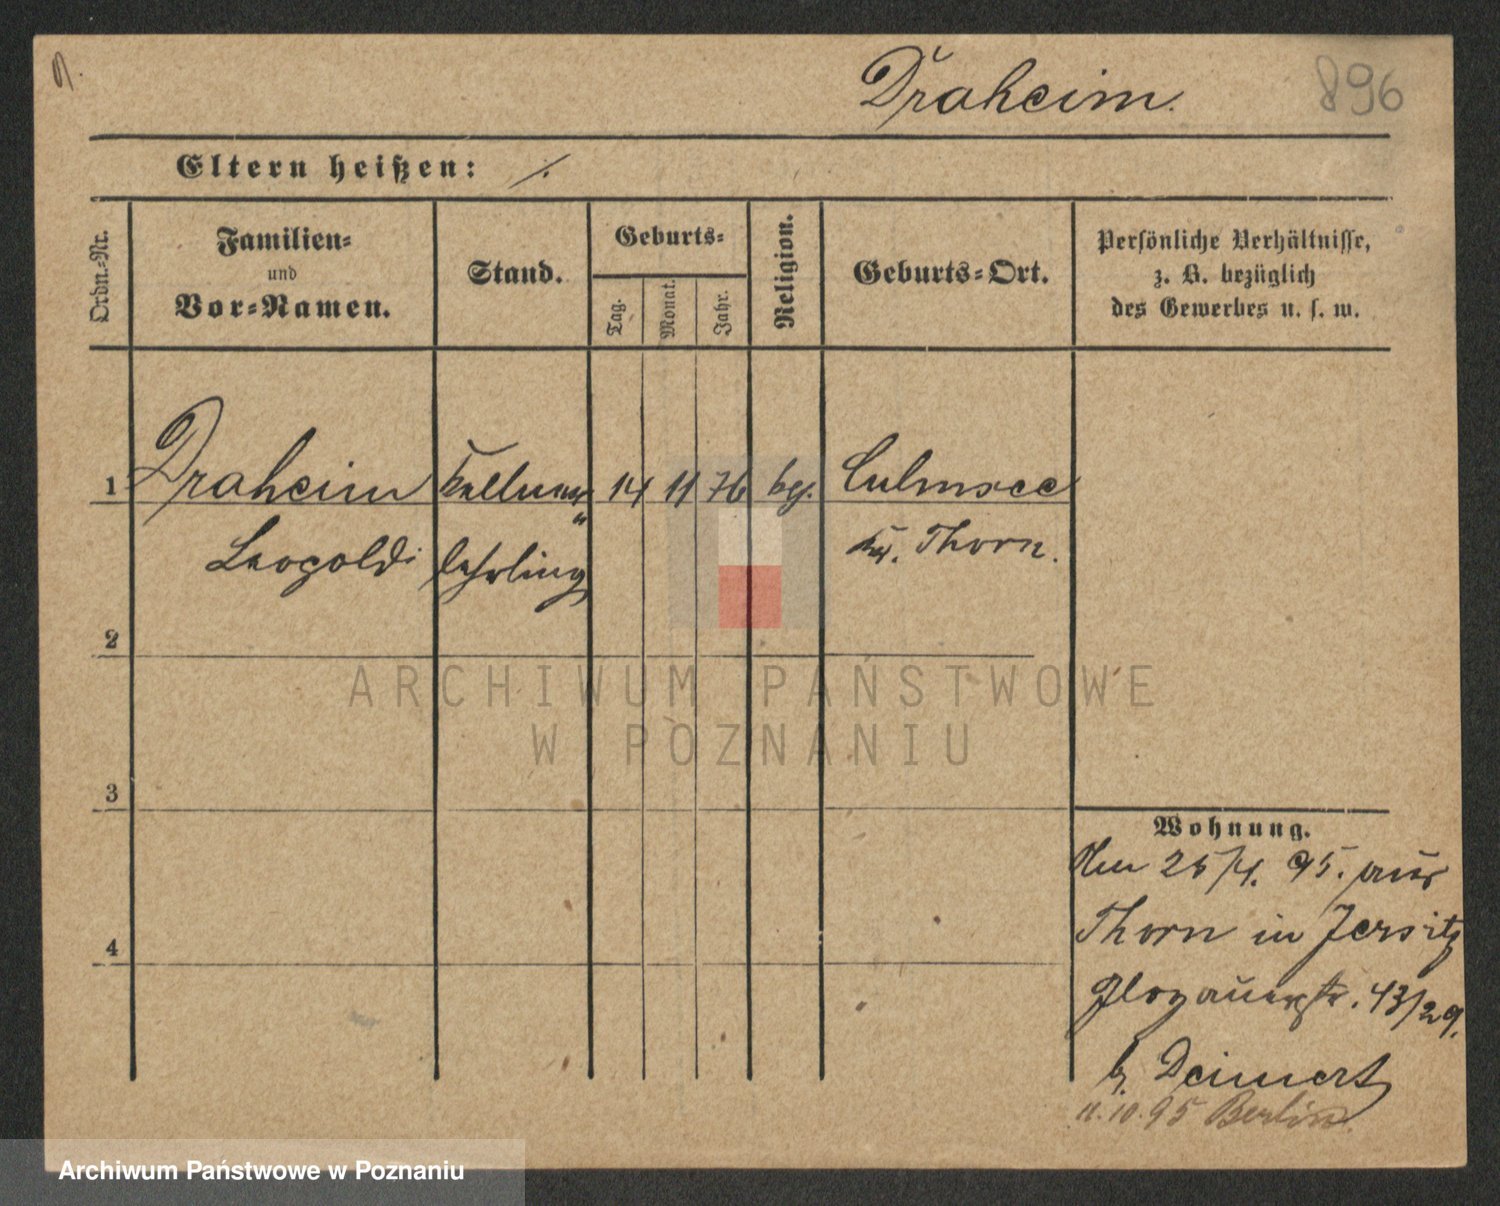 Draheim.
896
Eltern heißen: ./.
Ordn.-Nr.
Familien-
und
Vor-Namen.
Stand.
Geburts-
Tag.
Monat.
Jahr.
Religion.
Geburts-Ort.
Persönliche Verhältnisse,
z. B. bezüglich
des Gewerbes u. s. w.
1 Draheim Kellner 14 11 76 Culmsee
Leopold lehrling Kr. Thorn.
2
ARCHIWUM PAŃSTWOWE
W POZNANIU
3
Wohnung.
25/4. 95. aus
Thorn in Jersitz
Glogauerstr. 43/29.
b. Deinert
4
11.10.95 Berlin.
Archiwum Państwowe w Poznaniu